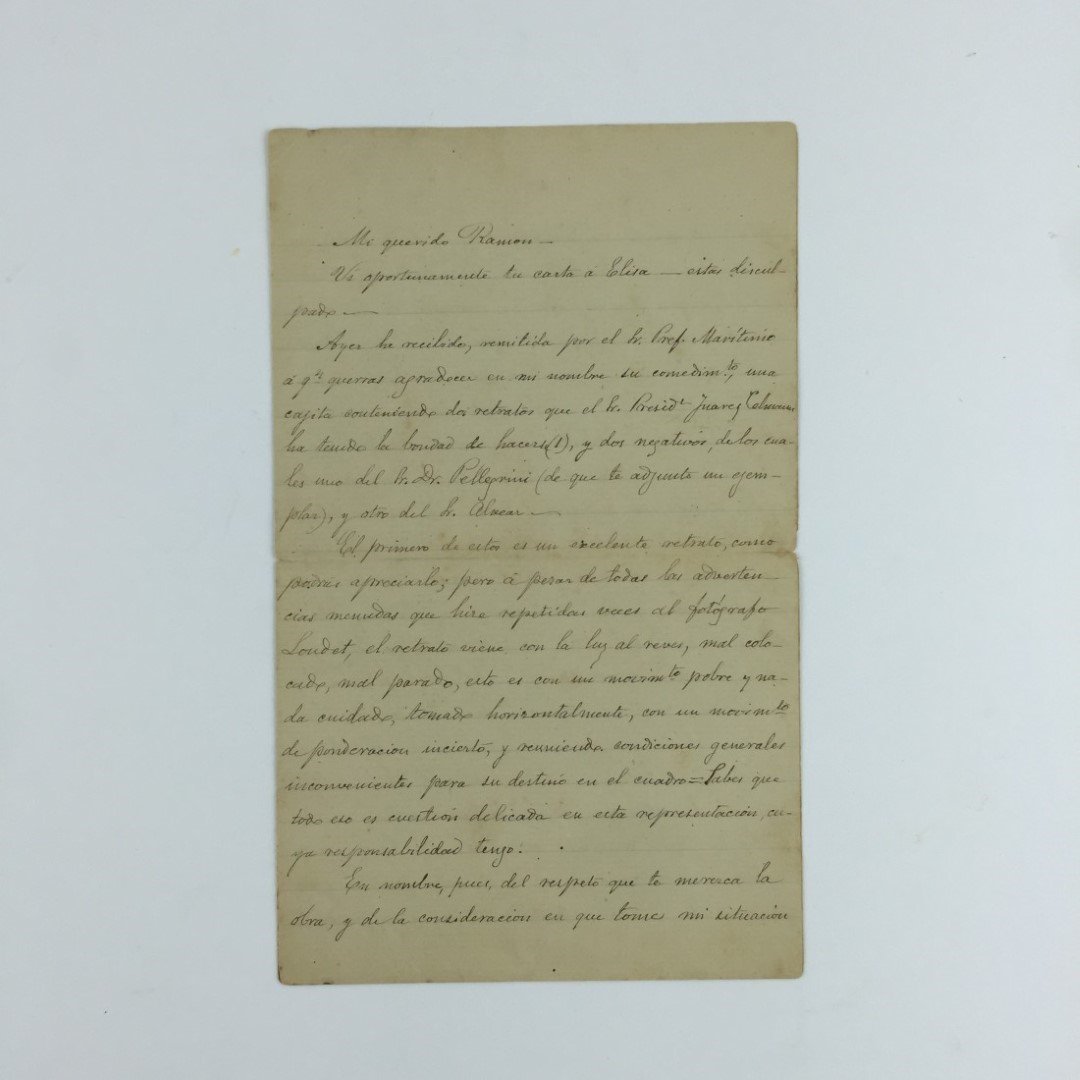 Mi querido Ramon —
Vi oportunamente tu carta á Elisa — estas discul-
pado —
Ayer he recibido, remitida por el Sr. Pref. Marítimo
á qn querras agradecer en mi nombre su comedimto, una
cajita conteniendo dos retratos que el Sr. Presidte Juarez Celman
ha tenido la bondad de hacerse (1), y dos negativos, de los cua-
les uno del Sr. Dr. Pellegrini (de que te adjunto un ejem-
plar), y otro del Sr. Alvear —
El primero de estos es un excelente retrato, como
podras apreciarlo; pero á pesar de todas las adverten-
cias menudas que hice repetidas veces al fotógrafo
Loudet, el retrato viene con la luz al reves, mal colo-
cado, mal parado, esto es con un movimto pobre y na-
da cuidado, tomado horizontalmente, con un movimto
de ponderacion incierto, y reuniendo condiciones generales
inconvenientes para su destino en el cuadro = Sabes que
todo eso es cuestion delicada en esta representacion, cu-
ya responsabilidad tengo.
En nombre, pues, del respeto que te merezca la
obra, y de la consideracion en que tomes mi situacion